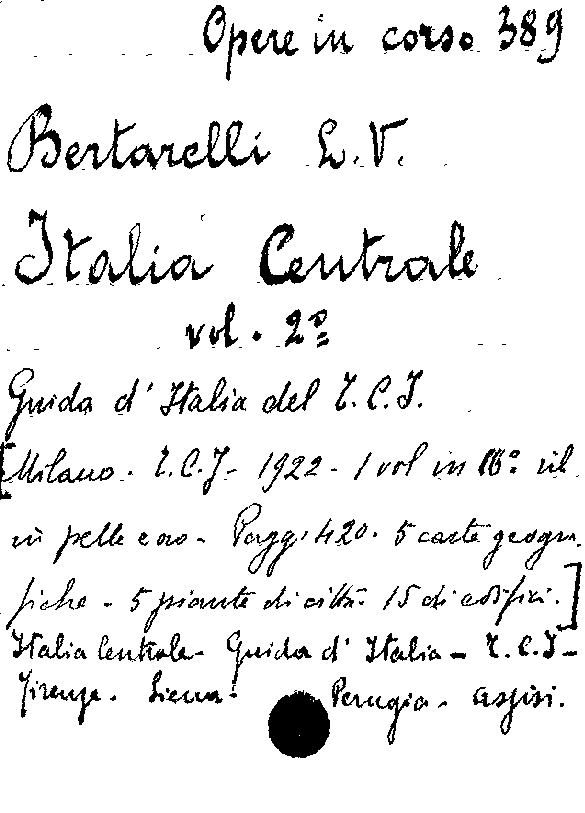 Opere in corso 389
Bertarelli L.V.
Italia Centrale
vol. 2º
Guida d'Italia del T.C.I.
[Milano. T.C.I- 1922- 1 vol in 16º ril
in pelle e oro- Pagg. 420. 5 carte geogra
fiche - 5 piante di città. 15 di edifizi.]
Italia Centrale- Guida d'Italia - T.C.I-
Firenze. Siena. Perugia. Assisi.